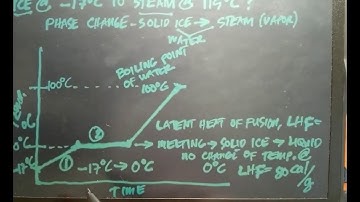 ICE @ -17°C TO STEAM @ 119°C?
PHASE CHANGE - SOLID ICE → STEAM (VAPOR)
WATER
BOILING POINT
OF WATER
100°C
100°C
TEMP.
0°C
0°C
-17°C
① -17°C → 0°C
②
LATENT HEAT OF FUSION, LHF=
→ MELTING → SOLID ICE → LIQUID
NO CHANGE OF TEMP. @
0°C LHF = 80 cal/g
TIME